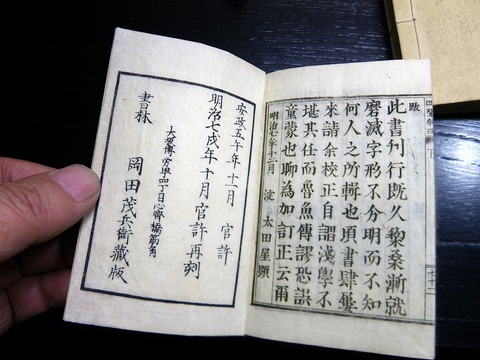 跋
此書刊行既久黎桑漸就
磨滅字形不分明而不知
何人之所輯也頃書肆屢
來請余校正自謂淺學不
堪其任而魯魚傳謬恐誤
童蒙也聊為加訂正云爾
明治七年十二月 淀 太田星顕
安政五午年十二月 官許
明治七戌年十月官許再刻
大阪博労町四丁目心齋橋筋角
書林 岡田茂兵衛藏版